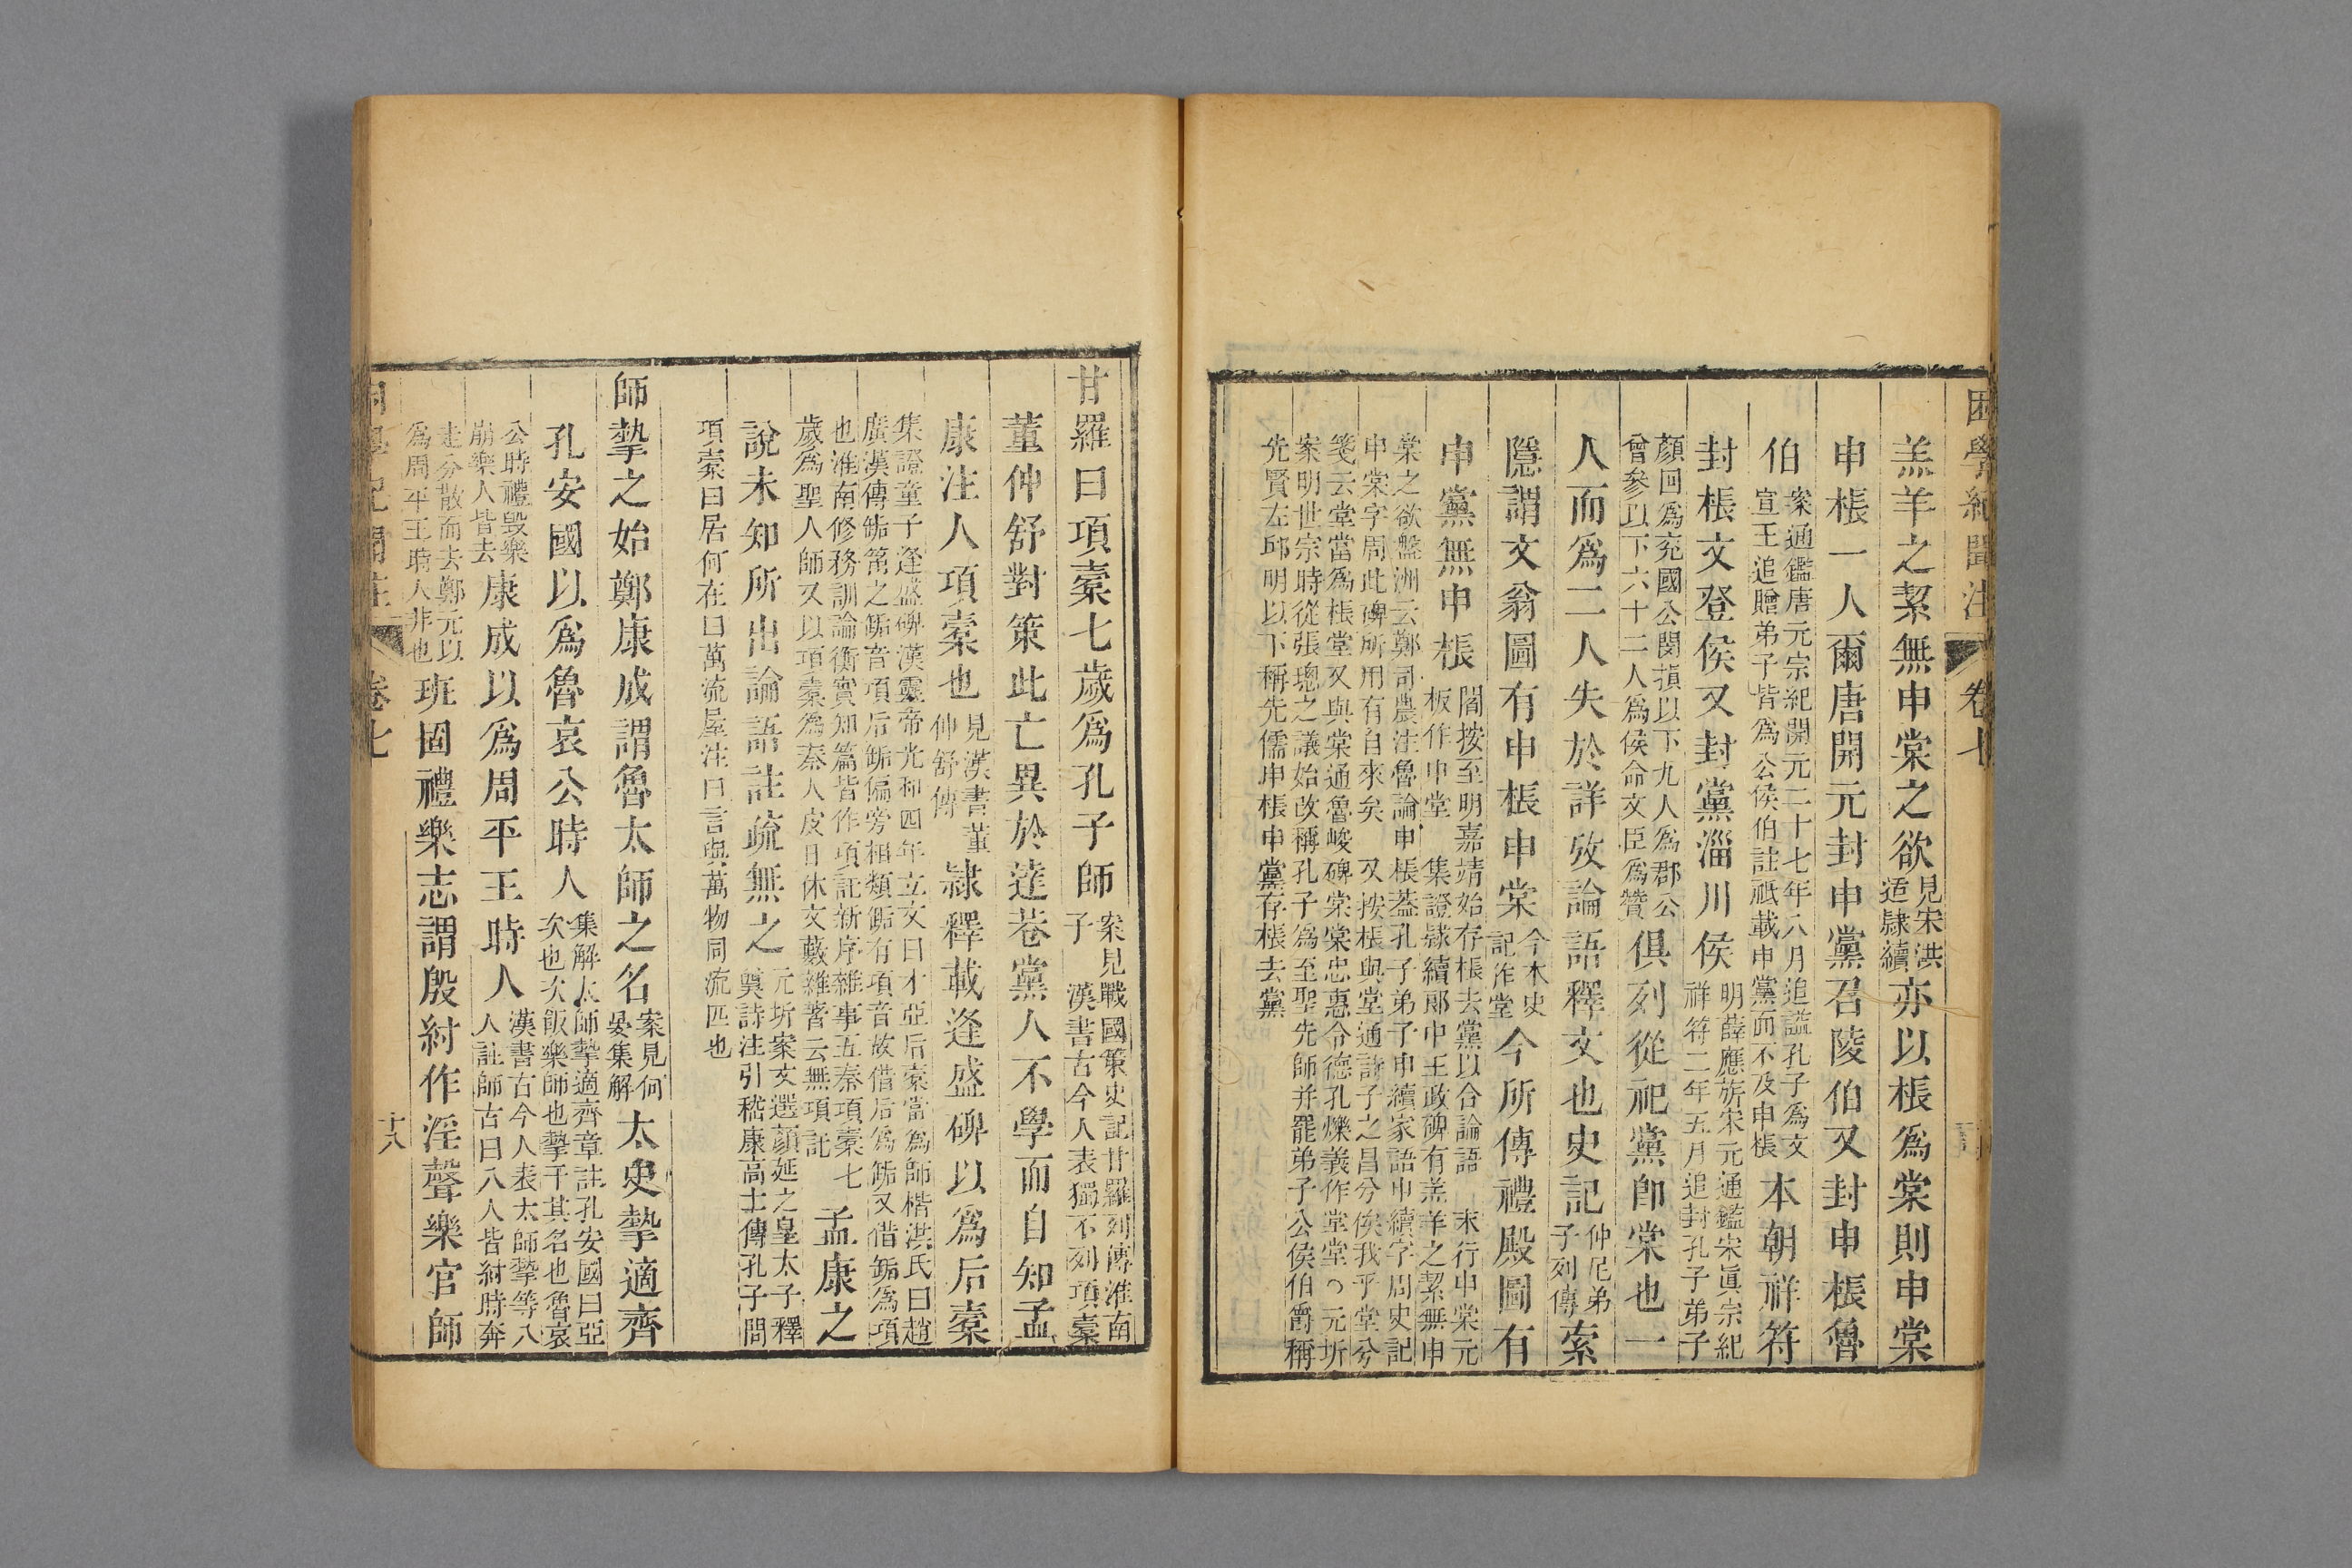 困學紀聞注 卷七
羔羊之絜無申棠之欲見宋洪
适隸續亦以棖為棠則申棠
申棖一人爾唐開元封申黨召陵伯又封申棖魯
伯案通鑑唐元宗紀開元二十七年八月追諡孔子為文
宣王追贈弟子皆為公侯伯註祇載申黨而不及申棖本朝祥符
封棖文登侯又封黨淄川侯明薛應旂宋元通鑑宋眞宗紀
祥符二年五月追封孔子弟子
顏回為兖國公閔損以下九人為郡公
曾參以下六十二人為侯命文臣為贊俱列從祀黨卽棠也一
人而為二人失於詳攷論語釋文也史記仲尼弟
子列傳索
隱謂文翁圖有申棖申棠今本史
記作堂今所傳禮殿圖有
申黨無申棖閻按至明嘉靖始存棖去黨以合論語 末行申棠元
板作申堂 集證隸續郎中王政碑有羔羊之絜無申
棠之欲盤洲云鄭司農注魯論申棖蓋孔子弟子申續家語申續字周史記
申棠字周此碑所用有自來矣 又按棖與堂通詩子之昌兮俟我乎堂兮
箋云堂當為棖堂又與棠通魯峻碑棠棠忠惠令德孔爍義作堂堂○元圻
案明世宗時從張璁之議始改稱孔子為至聖先師并罷弟子公侯伯爵稱
先賢左邱明以下稱先儒申棖申黨存棖去黨
甘羅曰項橐七歲為孔子師案見戰國策史記甘羅列傳淮南
子 漢書古今人表獨不列項橐
董仲舒對策此亡異於達巷黨人不學而自知孟
康注人項橐也見漢書董
仲舒傳隸釋載逢盛碑以為后橐
集證童子逢盛碑漢靈帝光和四年立文曰才亞后橐當為師楷洪氏曰趙
廣漢傳缿筩之缿音項后缿偏旁相類缿有項音故借后為缿又借缿為項
也淮南修務訓論衡實知篇皆作項託新序雜事五秦項橐七
歲為聖人師又以項橐為秦人皮日休文藪雜著云無項託孟康之
說未知所出論語註疏無之元圻案文選顏延之皇太子釋
奠詩注引嵇康高士傳孔子問
項橐曰居何在曰萬流屋注曰言與萬物同流匹也
師摯之始鄭康成謂魯太師之名案見何
晏集解太史摯適齊
孔安國以為魯哀公時人集解太師摯適齊章註孔安國曰亞
次也次飯樂師也摯干其名也魯哀
公時禮毀樂
崩樂人皆去康成以為周平王時人漢書古今人表太師摯等八
人註師古曰八人皆紂時奔
走分散而去鄭元以
為周平王時人非也班固禮樂志謂殷紂作淫聲樂官師
困學紀聞注 卷七 十八